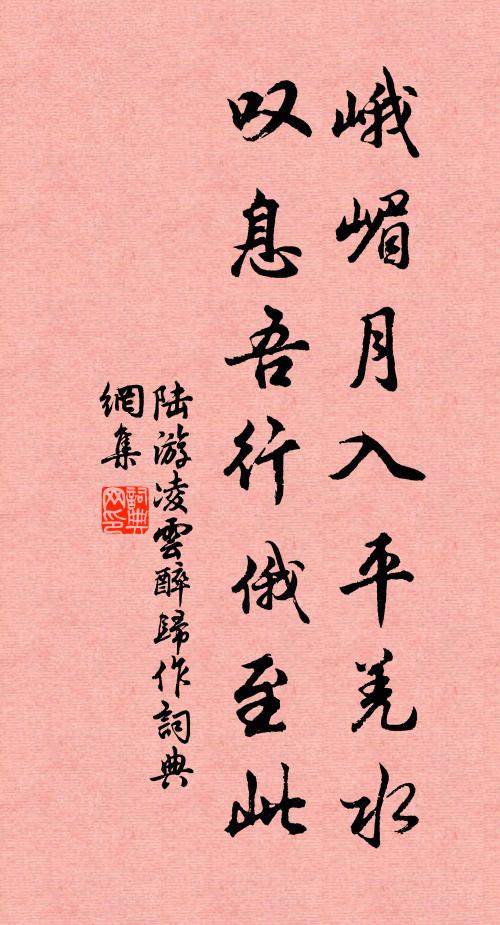 峨嵋月入平羌水
叹息吾行俄至此
陆游凌雲醉歸作詞典
網集
詞典网印